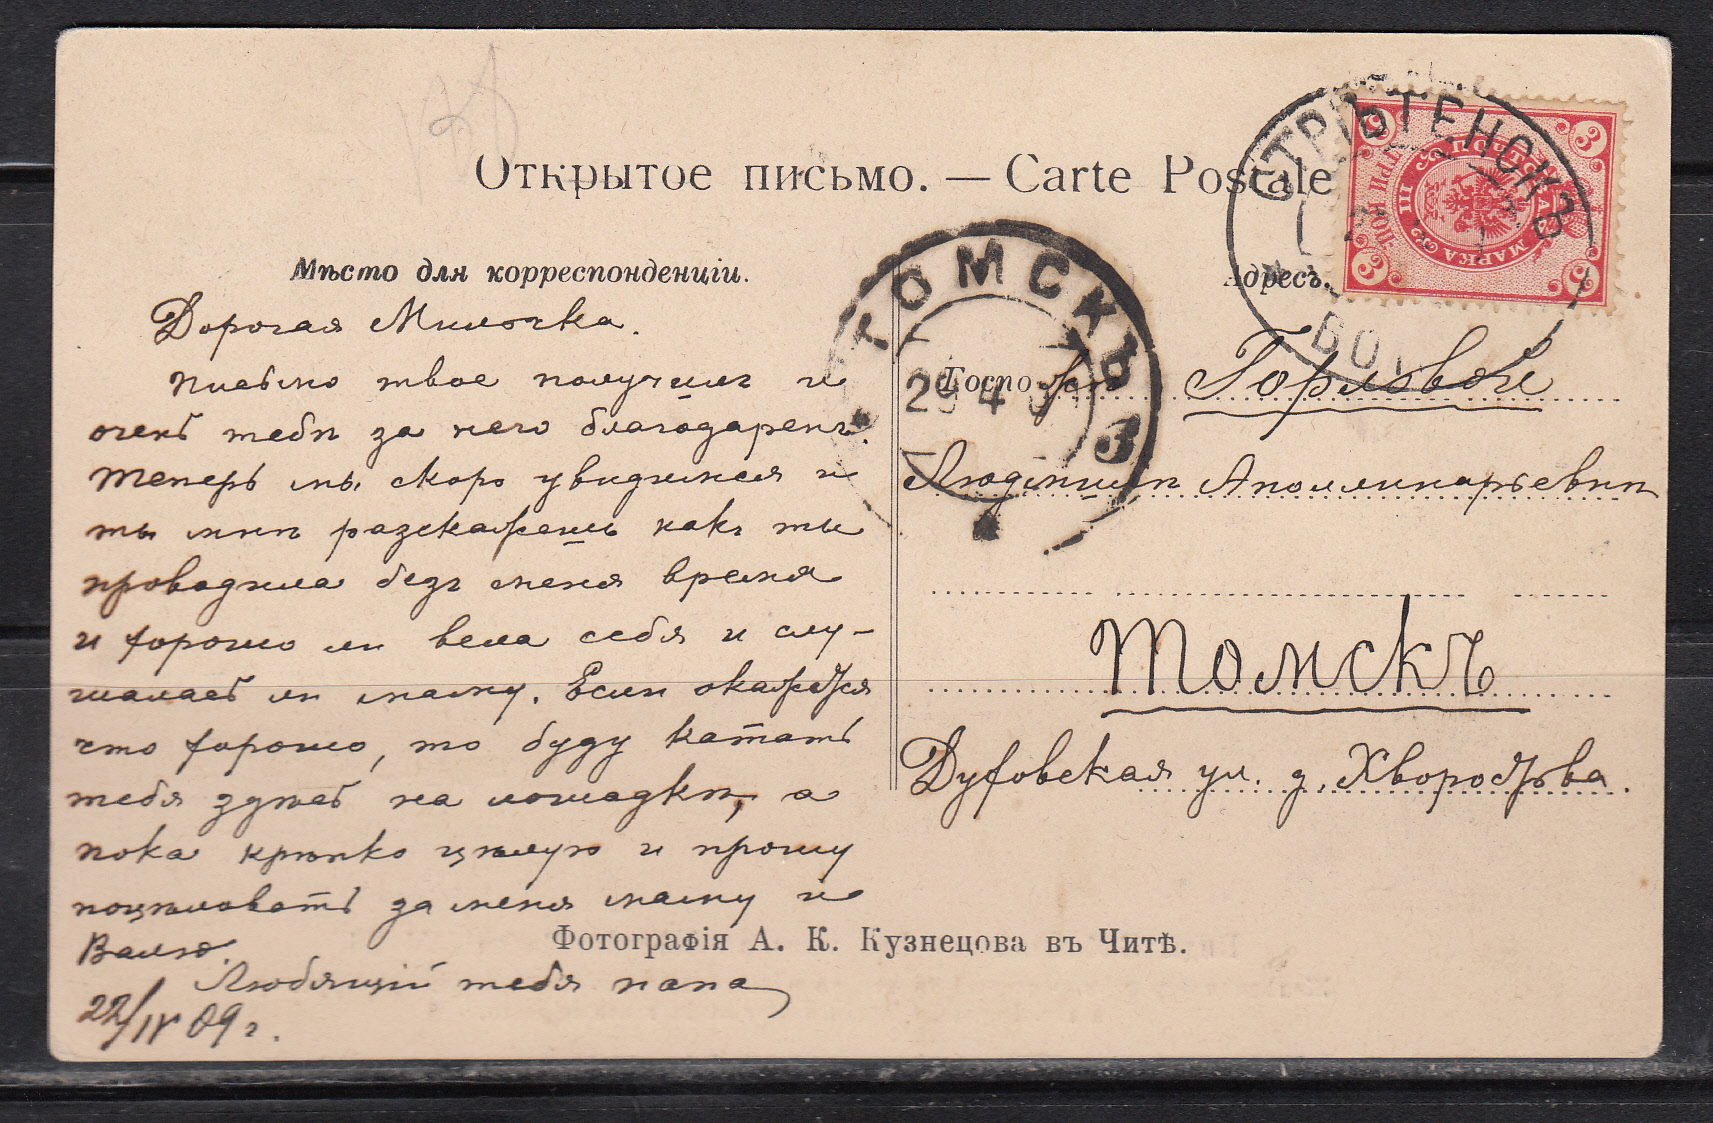 Открытое письмо. — Carte Postale
Мѣсто для корреспонденціи.
Адресъ.
Дорогая Милочка.
письмо твое получилъ и
очень тебѣ за него благодаренъ.
Теперь мы скоро увидимся и
ты мнѣ разскажешь какъ ты
проводила безъ меня время
и хорошо ли вела себя и слу-
шалась ли маму. Если окажется
что хорошо, то буду катать
тебя здѣсь на лошадкѣ, а
пока крѣпко цѣлую и прошу
поцѣловать за меня маму и
Валю.
Любящій тебя папа
22/IV 09 г.
Госпожѣ Горловой
Людмилѣ Аполлинарьевнѣ
Томскъ
Духовская ул. д. Хворостова.
Фотографія А. К. Кузнецова въ Читѣ.
ТОМСКЪ
29 4 09
3
СТРѢТЕНСКЪ
ПОЧТОВАЯ МАРКА
3
3
3
3